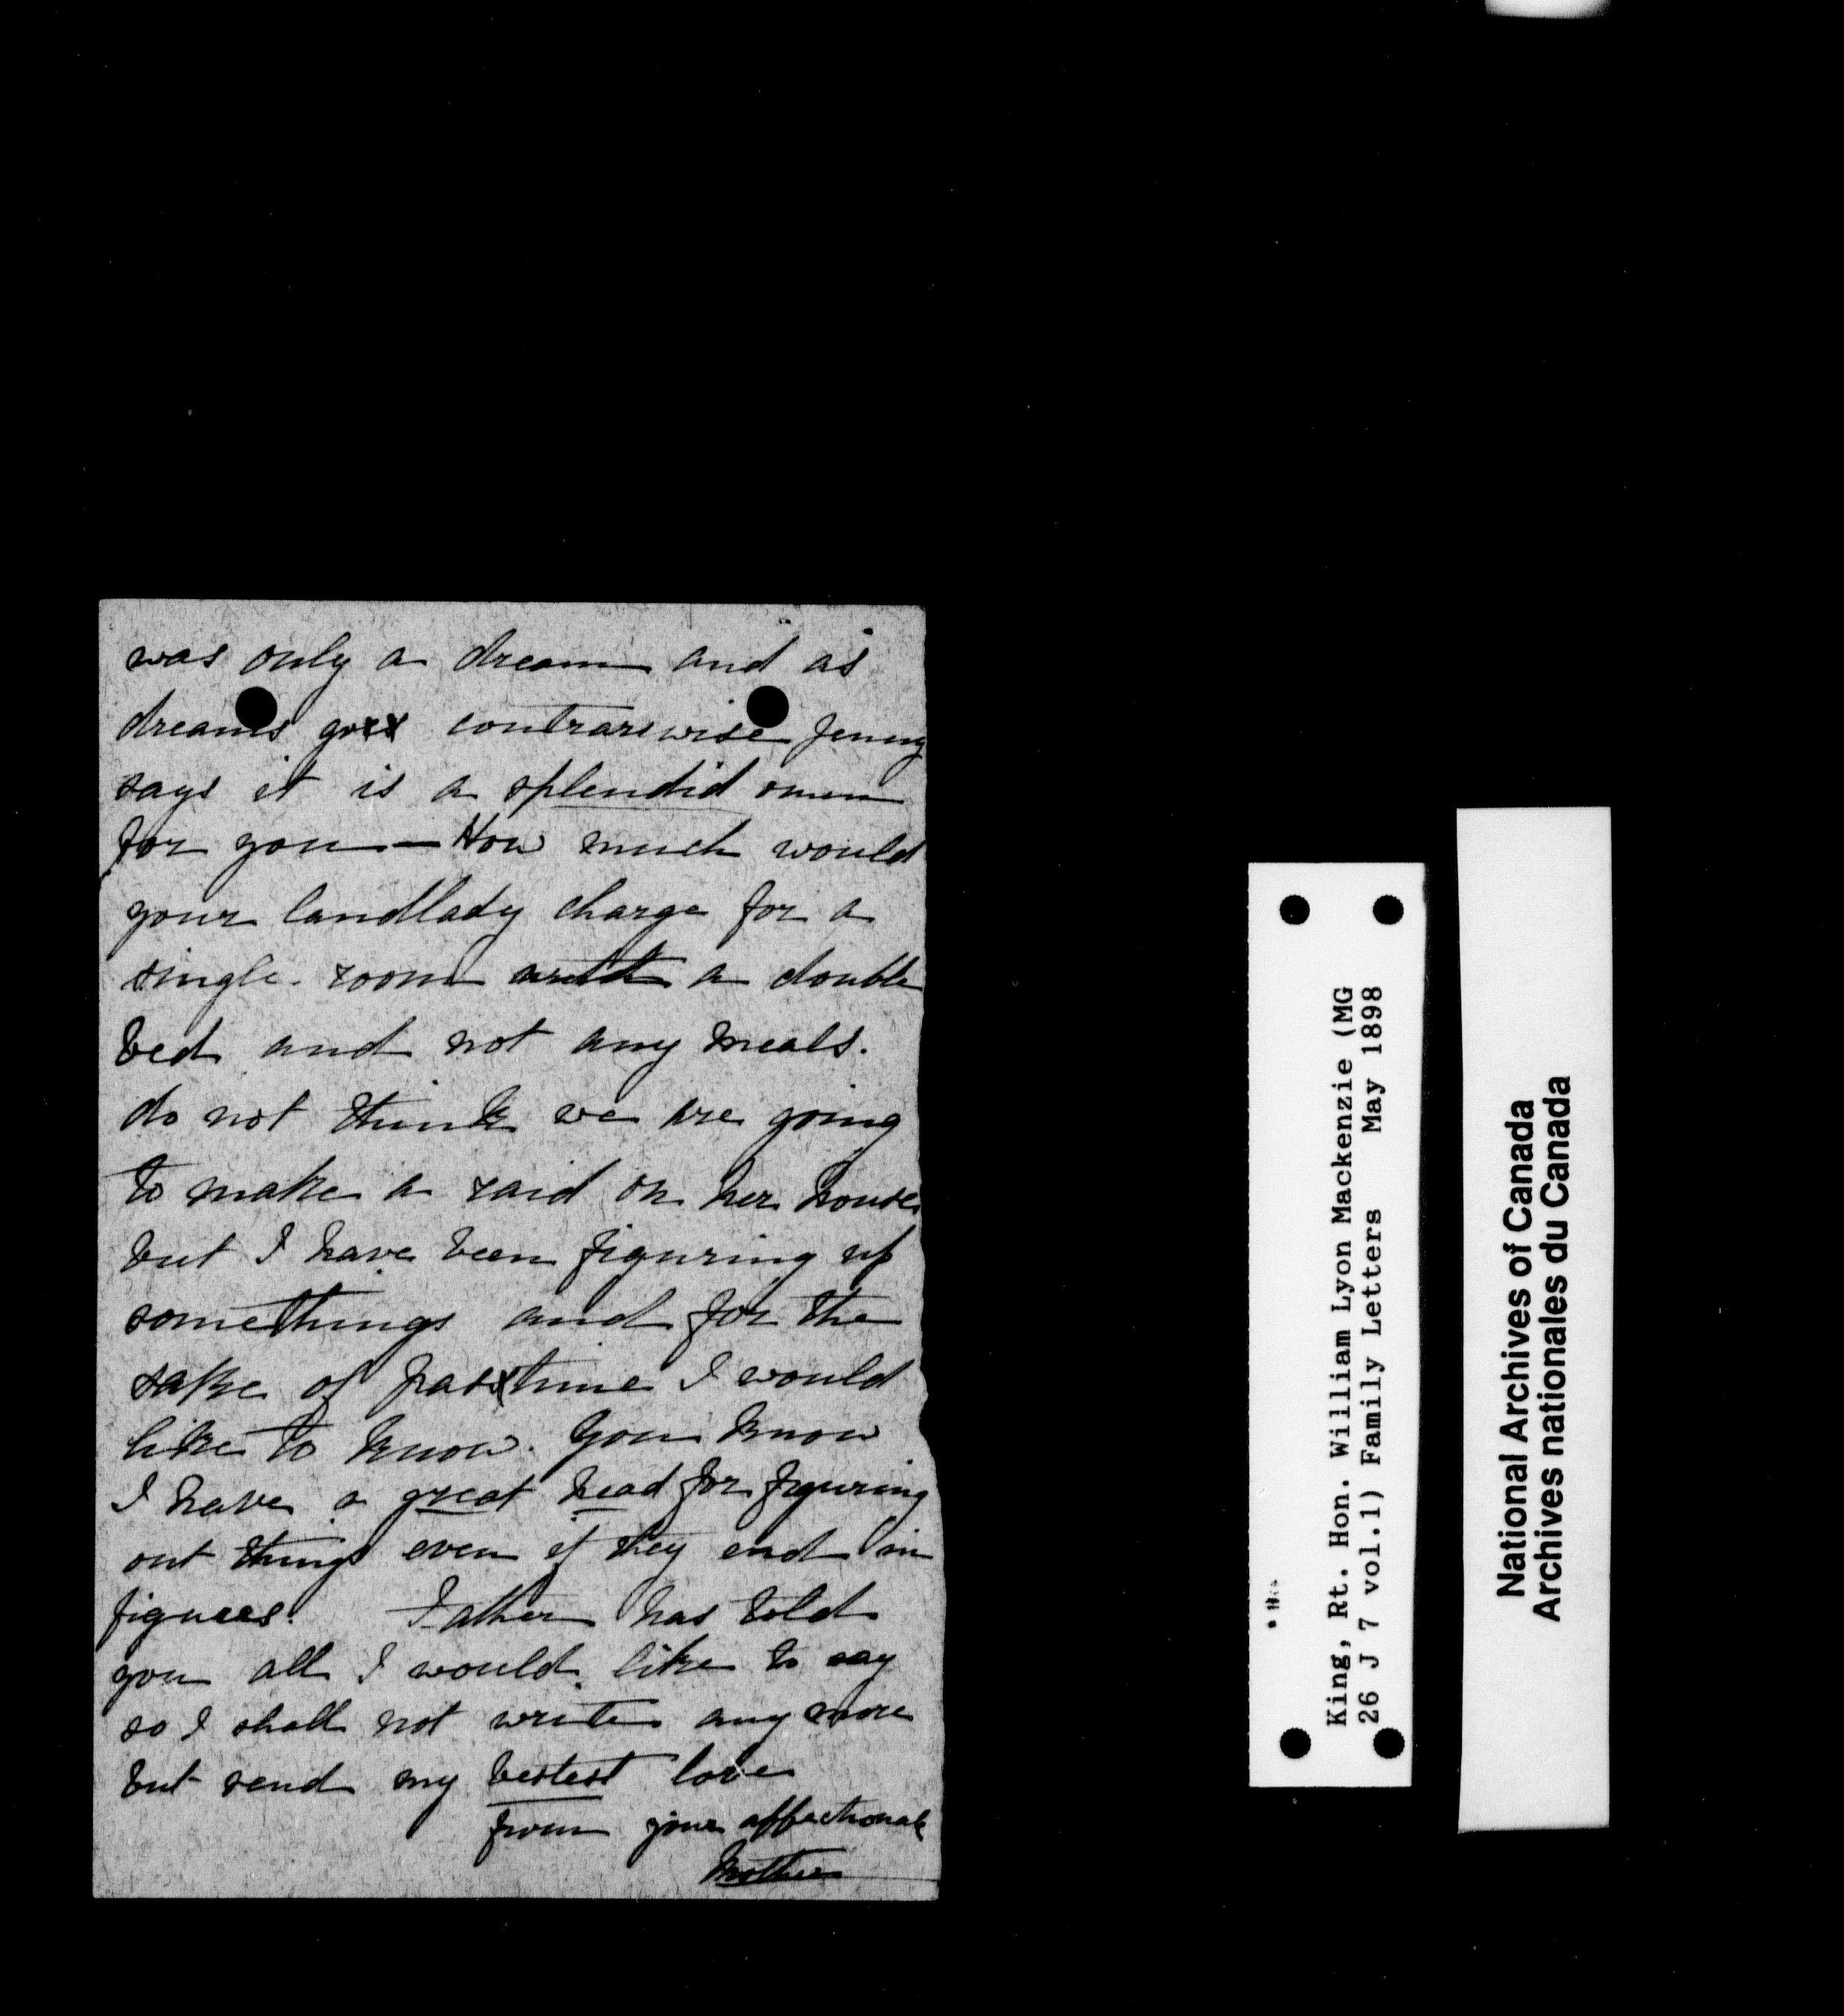 was only a dream and as
dreams go contrariwise Jenny
says it is a splendid omen
for you — How much would
your landlady charge for a
single room with a double
bed and not any meals.
do not think we are going
to make a raid on her house
but I have been figuring up
somethings and for the
sake of pastime I would
like to know. You know
I have a great head for figuring
out things even if they end in
figures. Father has told
you all I would like to say
so I shall not write any more
but send my bestest love
from your affectionate
Mother
King, Rt. Hon. William Lyon Mackenzie (MG
26 J 7 vol.1) Family Letters May 1898
National Archives of Canada
Archives nationales du Canada